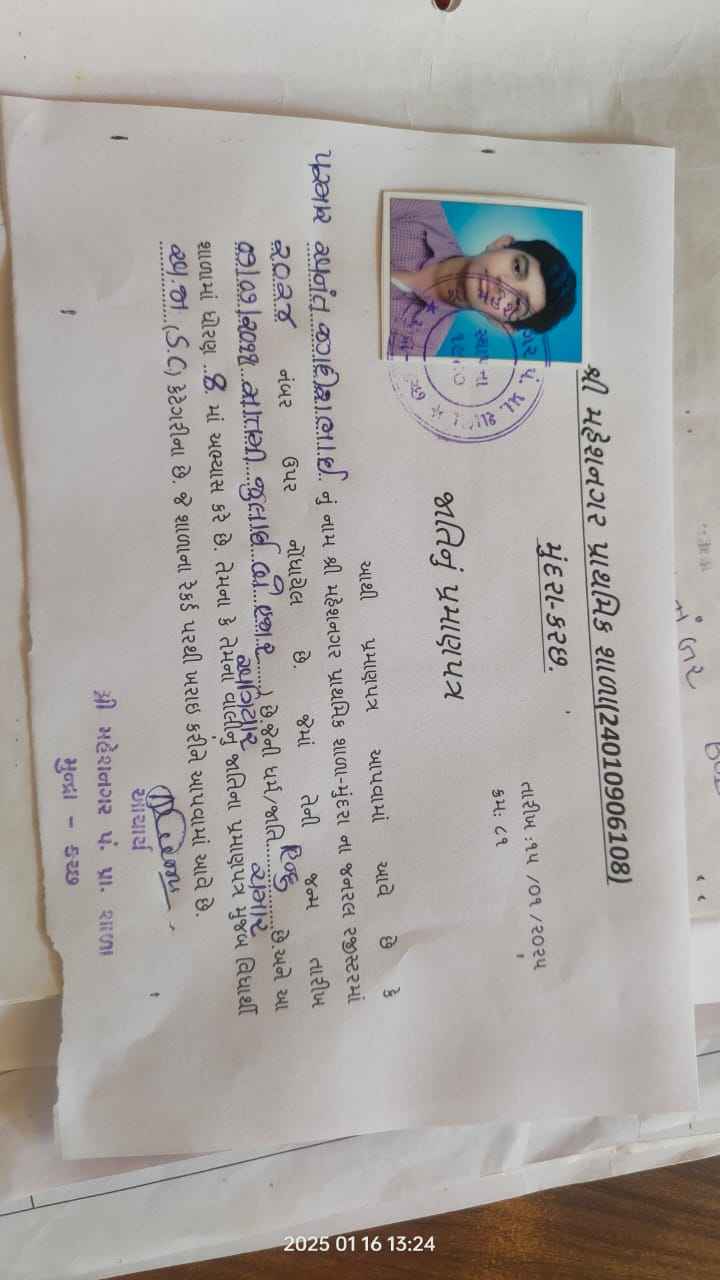 શ્રી મહેશનગર પ્રાથમિક શાળા(24010906108)
મુંદરા-કચ્છ.
તારીખ :૧૫ /૦૧ /૨૦૨૫
ક્રમ: ૮૧
જાતિનું પ્રમાણપત્ર
આથી પ્રમાણપત્ર આપવામાં આવે છે કે
પરમાર કાર્તિકભાઈ નું નામ શ્રી મહેશનગર પ્રાથમિક શાળા-મુંદરા ના જનરલ રજીસ્ટરમાં
૨૦૨૪ નંબર ઉપર નોંધાયેલ છે. જેમાં તેની જન્મ તારીખ
જુલાઈ છે.જેની ધર્મ/જાતિ હિન્દુ છે.અને આ
શાળામાં ધોરણ 8 માં અભ્યાસ કરે છે. તેમના કે તેમના વાલીનું જાતિના પ્રમાણપત્ર મુજબ વિધાથી
(S.C) કેટેગરીના છે. જે શાળાના રેકર્ડ પરથી ખરાઇ કરીને આપવામાં આવે છે.
આચાર્ય
શ્રી મહેશનગર પં. પ્રા. શાળા
મુન્દ્રા - કચ્છ
2025 01 16 13:24